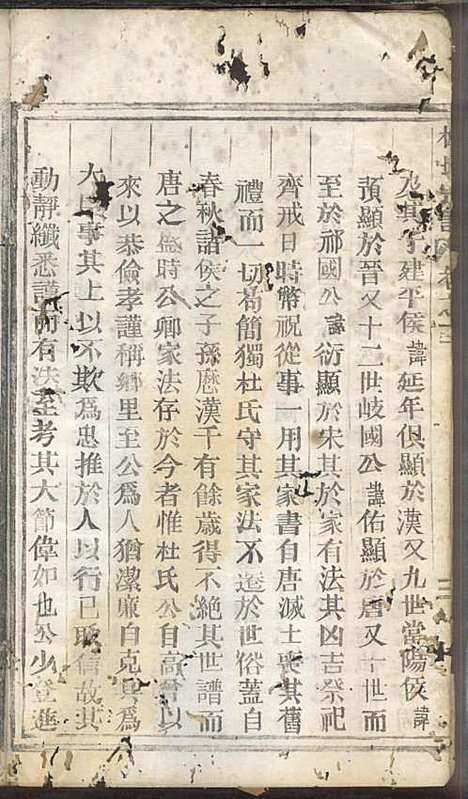 及其子建平侯諱延年俱顯於漢又九世當陽侯諱
預顯於晉又十二世岐國公諱佑顯於唐又十世而
至於祁國公諱衍顯於宋其於家有法其凶吉祭祀
齊戒日時幣祝從事一用其家書自唐滅士喪其舊
禮而一切苟簡獨杜氏守其家法不遷於世俗蓋自
春秋諸侯之子孫歷漢千有餘歲得不絕其世譜而
唐之盛時公卿家法存於今者惟杜氏公自高曾以
來以恭儉孝謹稱鄉里至公為人猶潔廉自克其為
大臣事其上以不欺為忠推於人以行已取信故其
動靜纖悉謹而有法至考其大節偉如也公少登進